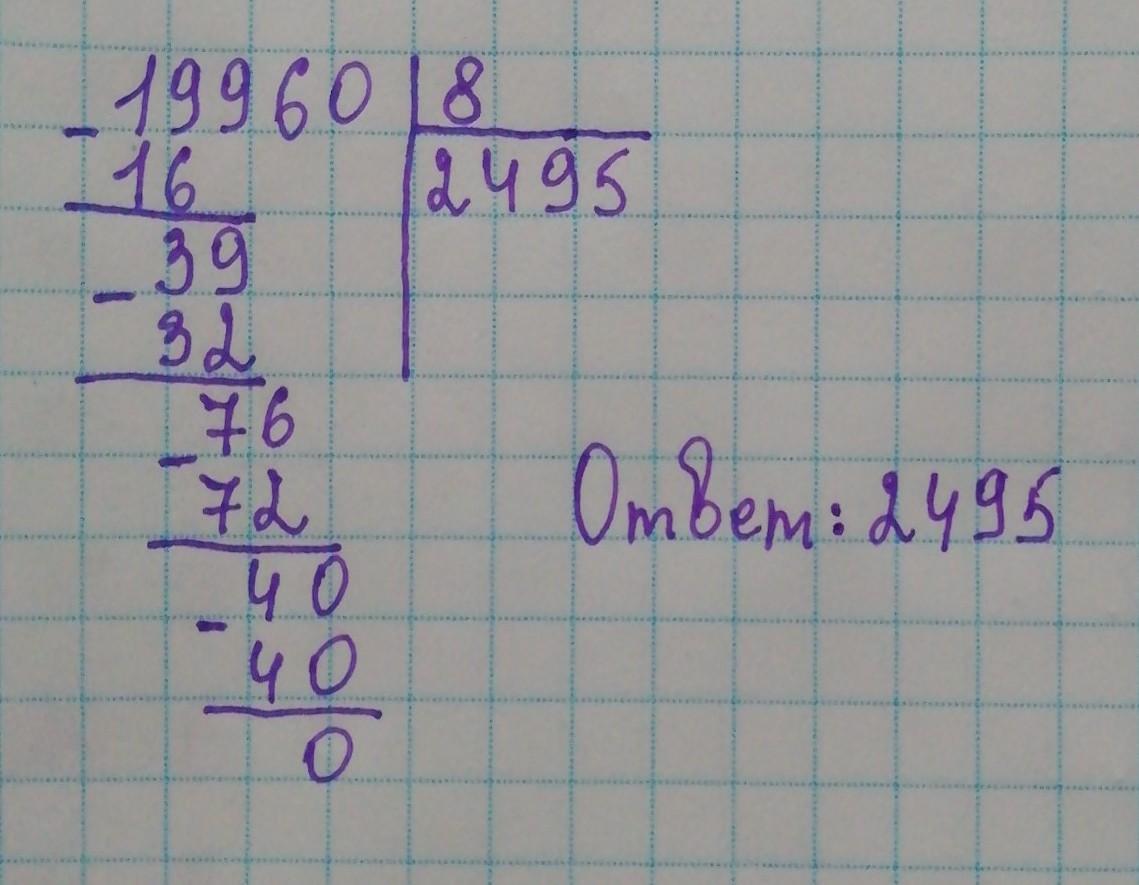 19960 | 8
- 16 | 2495
39
- 32
76
- 72
40
- 40
0
Ответ: 2495